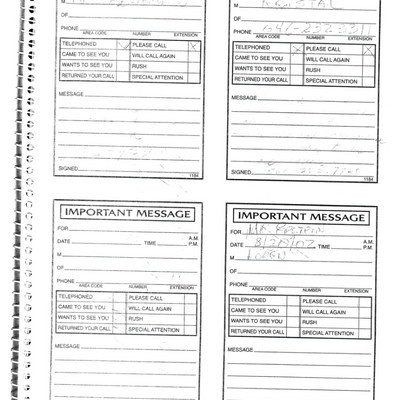 M
OF
PHONE
AREA CODE NUMBER EXTENSION
TELEPHONED X PLEASE CALL X
CAME TO SEE YOU WILL CALL AGAIN
WANTS TO SEE YOU RUSH
RETURNED YOUR CALL SPECIAL ATTENTION
MESSAGE
SIGNED
1184
M
OF
PHONE
AREA CODE NUMBER EXTENSION
TELEPHONED X PLEASE CALL X
CAME TO SEE YOU WILL CALL AGAIN
WANTS TO SEE YOU RUSH
RETURNED YOUR CALL SPECIAL ATTENTION
MESSAGE
SIGNED
1184
IMPORTANT MESSAGE
FOR
DATE TIME A.M. P.M.
M
OF
PHONE
AREA CODE NUMBER EXTENSION
TELEPHONED PLEASE CALL
CAME TO SEE YOU WILL CALL AGAIN
WANTS TO SEE YOU RUSH
RETURNED YOUR CALL SPECIAL ATTENTION
MESSAGE
IMPORTANT MESSAGE
FOR
DATE TIME A.M. P.M.
M
OF
PHONE
AREA CODE NUMBER EXTENSION
TELEPHONED PLEASE CALL
CAME TO SEE YOU WILL CALL AGAIN
WANTS TO SEE YOU RUSH
RETURNED YOUR CALL SPECIAL ATTENTION
MESSAGE